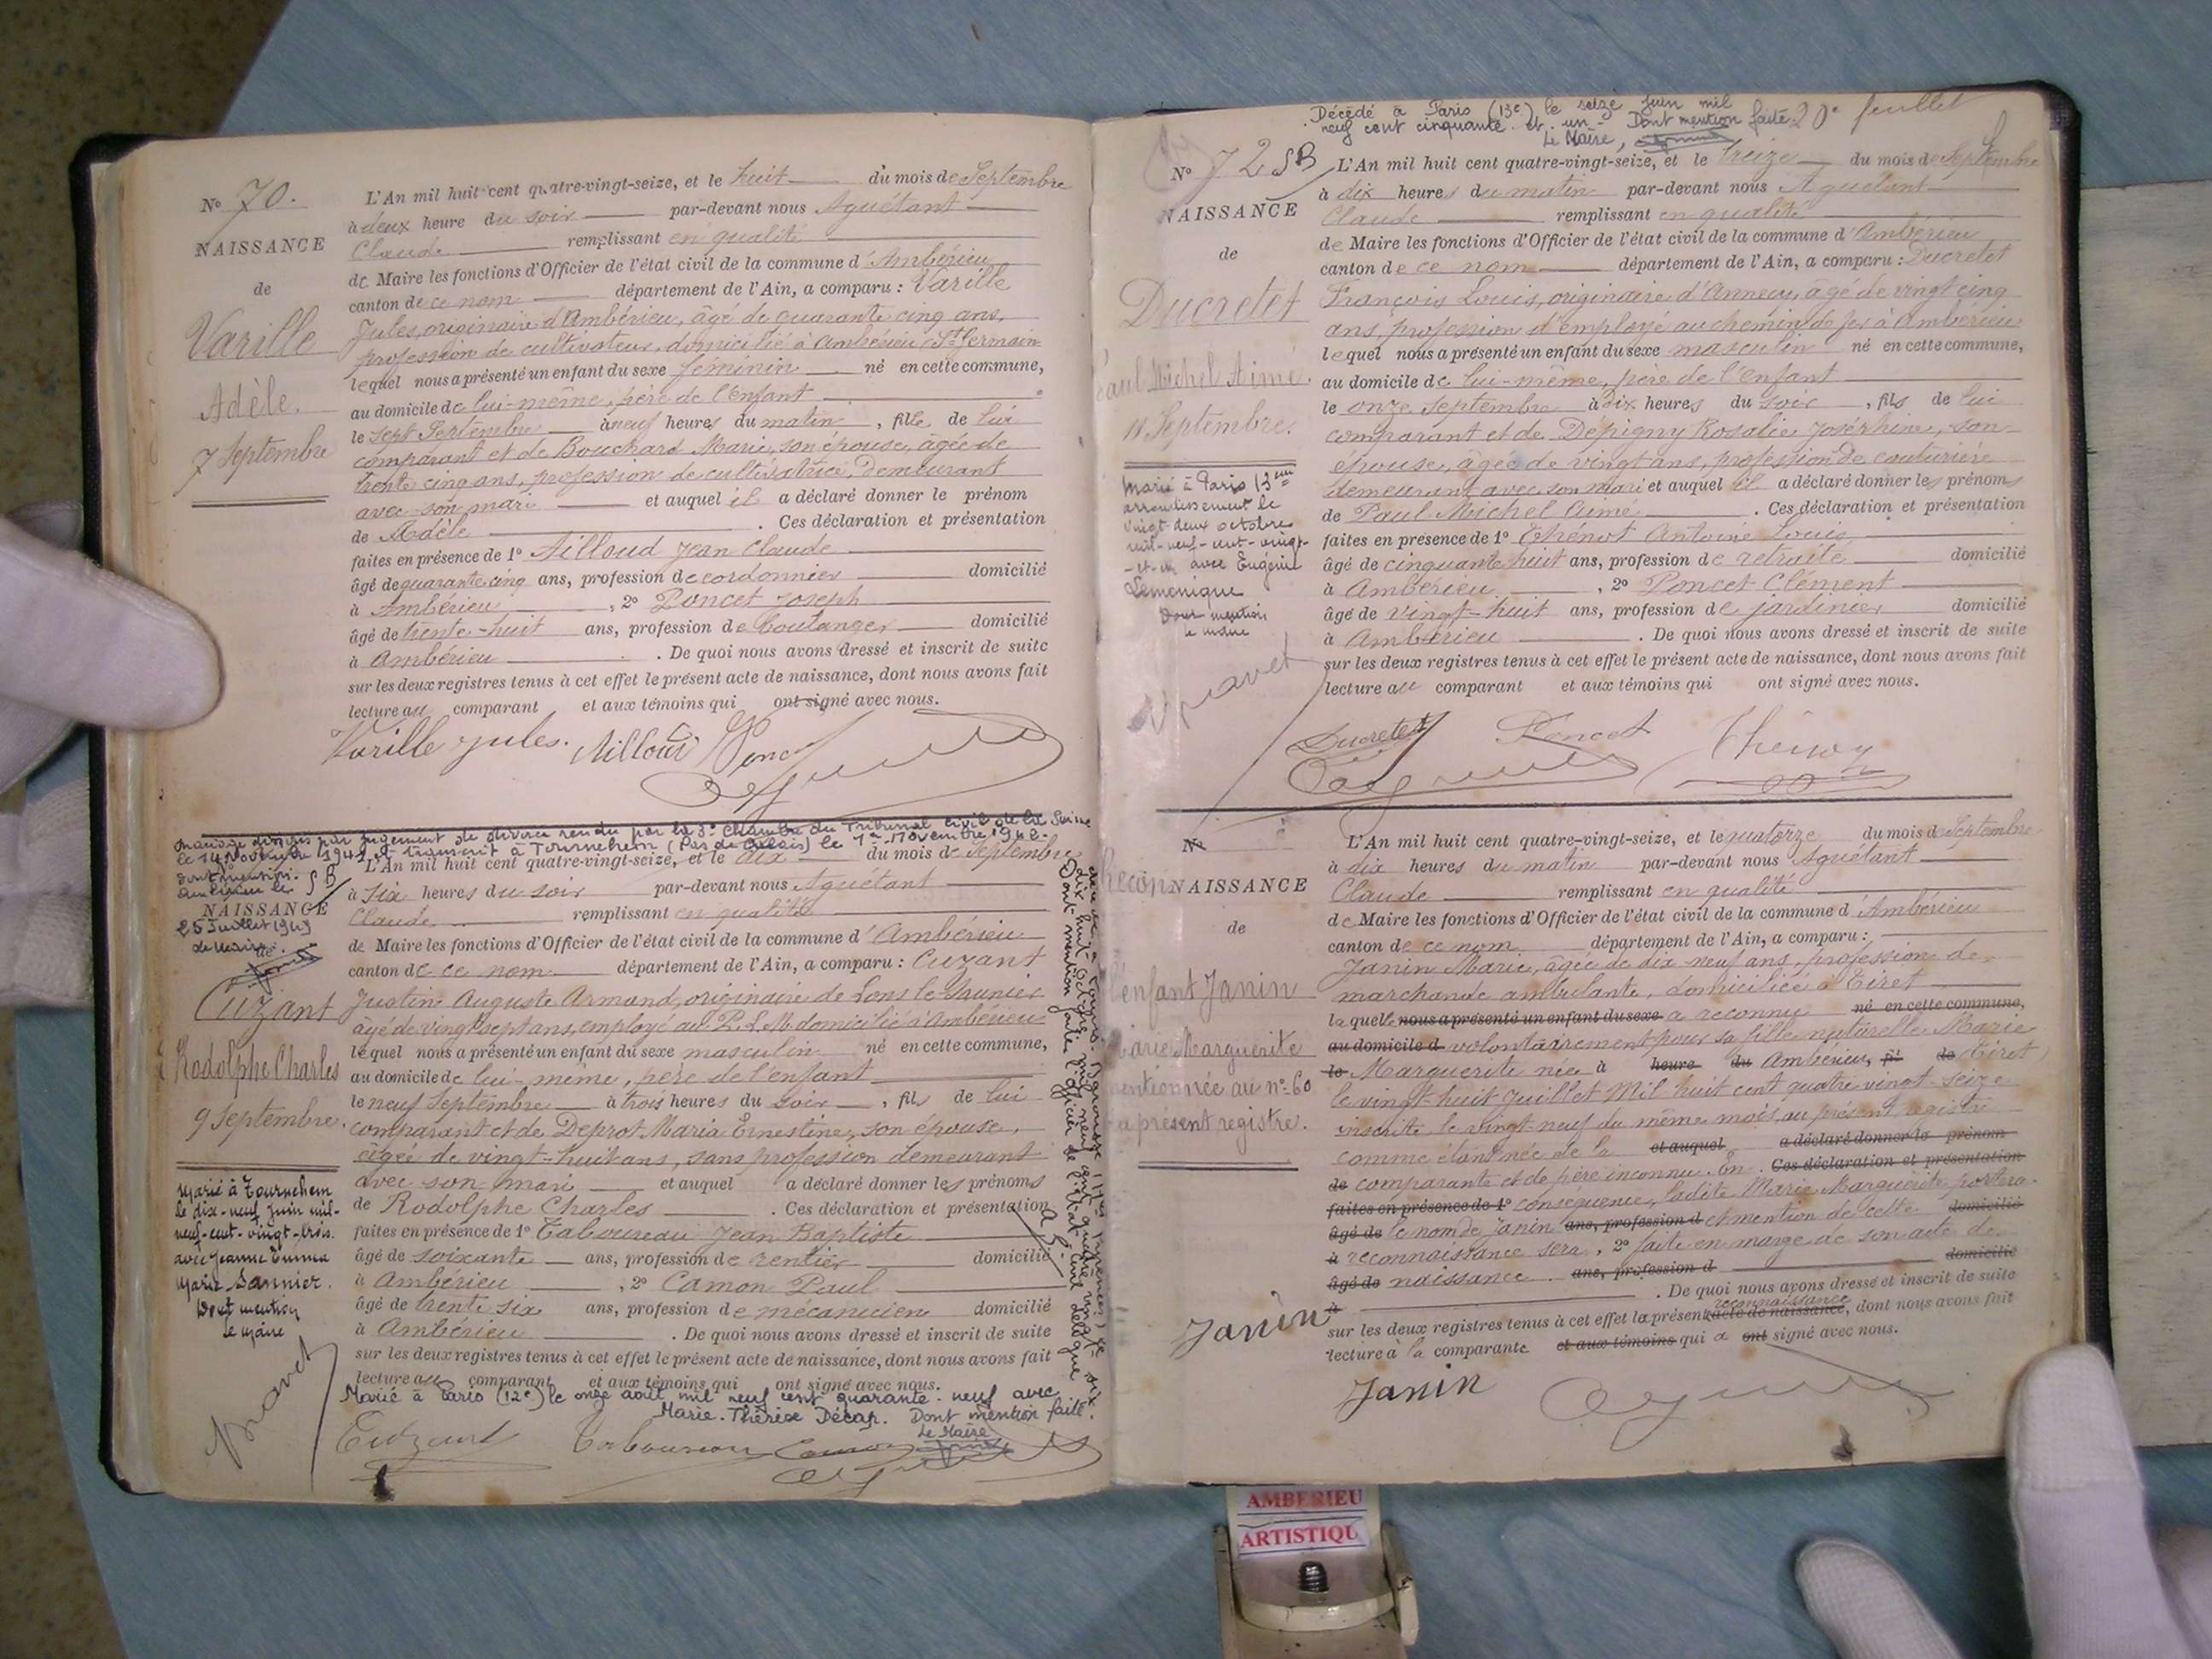 No 70.
NAISSANCE
de
Varille
Adèle.
7 Septembre
L'An mil huit cent quatre-vingt-seize, et le huit du mois de Septembre
à deux heure du soir par-devant nous Aguétant
Claude remplissant en qualité
de Maire les fonctions d'Officier de l'état civil de la commune d'Ambérieu
canton de ce nom département de l'Ain, a comparu : Varille
Jules, originaire d'Ambérieu, âgé de quarante cinq ans,
profession de cultivateur, domicilié à Ambérieu St Germain
lequel nous a présenté un enfant du sexe féminin né en cette commune,
au domicile de lui-même, père de l'enfant
le sept Septembre à neuf heures du matin, fille de lui
comparant et de Bouchard Marie, son épouse, âgée de
trente cinq ans, profession de cultivatrice, demeurant
avec son mari et auquel il a déclaré donner le prénom
de Adèle. Ces déclaration et présentation
faites en présence de 1° Ailloud Jean Claude
âgé de quarante cinq ans, profession de cordonnier domicilié
à Ambérieu, 2° Poncet Joseph
âgé de trente-huit ans, profession de boulanger domicilié
à Ambérieu. De quoi nous avons dressé et inscrit de suite
sur les deux registres tenus à cet effet le présent acte de naissance, dont nous avons fait
lecture au comparant et aux témoins qui ont signé avec nous.
Varille Jules. Ailloud
Mariage dissous par jugement de divorce rendu par la 3e Chambre du Tribunal civil de la Seine
le 14 Novembre 1941 et transcrit à Tournehem (Pas de Calais) le 1er Novembre 1942.
dont mention.
Ambérieu le SB
25 Juillet 1949
NAISSANCE
de
Cuzant
Rodolphe Charles
9 Septembre.
Marié à Tournehem
le dix-neuf Juin mil-
neuf-cent-vingt-trois.
avec Jeanne Emma
Marie Sannier.
Dont mention
Le Maire
L'An mil huit cent quatre-vingt-seize, et le dix du mois de Septembre
à six heures du soir par-devant nous Aguétant
Claude remplissant en qualité
de Maire les fonctions d'Officier de l'état civil de la commune d'Ambérieu
canton de ce nom département de l'Ain, a comparu : Cuzant
Justin Auguste Armand, originaire de Lons le Saunier
âgé de vingt sept ans, employé au P.L.M. domicilié à Ambérieu
lequel nous a présenté un enfant du sexe masculin né en cette commune,
au domicile de lui-même, père de l'enfant
le neuf Septembre à trois heures du soir, fils de lui
comparant et de Deprot Maria Ernestine, son épouse,
âgée de vingt-huit ans, sans profession demeurant
avec son mari et auquel a déclaré donner les prénoms
de Rodolphe Charles. Ces déclaration et présentation
faites en présence de 1° Taboureau Jean Baptiste
âgé de soixante ans, profession de rentier domicilié
à Ambérieu, 2° Camon Paul
âgé de trente six ans, profession de mécanicien domicilié
à Ambérieu. De quoi nous avons dressé et inscrit de suite
sur les deux registres tenus à cet effet le présent acte de naissance, dont nous avons fait
lecture au comparant et aux témoins qui ont signé avec nous.
Marié à Paris (12e) le onze août mil neuf cent quarante-neuf avec
Marie-Thérèse Décap. Dont mention faite.
Le Maire
Cuzant
Dont mention faite. L'officier de l'état civil délégué
Décédé à Paris (13e) le seize Juin mil
neuf cent cinquante et un - Dont mention faite
Le Maire,
20e feuillet
No 72 SB
NAISSANCE
de
Ducretet
Paul Michel Aimé.
11 Septembre.
Marié à Paris 13me
arrondissement le
vingt-deux octobre
mil-neuf-cent-vingt-
-et-un avec Eugénie
Lemenique
Dont mention
Le Maire
L'An mil huit cent quatre-vingt-seize, et le treize du mois de Septembre
à dix heures du matin par-devant nous Aguétant
Claude remplissant en qualité
de Maire les fonctions d'Officier de l'état civil de la commune d'Ambérieu
canton de ce nom département de l'Ain, a comparu : Ducretet
François Louis, originaire d'Annecy, âgé de vingt cinq
ans, profession d'employé au chemin de fer à Ambérieu
lequel nous a présenté un enfant du sexe masculin né en cette commune,
au domicile de lui-même, père de l'enfant
le onze Septembre à dix heures du soir, fils de lui
comparant et de Depigny Rosalie Joséphine, son
épouse, âgée de vingt ans, profession de couturière
demeurant avec son mari et auquel il a déclaré donner les prénoms
de Paul Michel Aimé. Ces déclaration et présentation
faites en présence de 1° Thénot Antoine Louis
âgé de cinquante huit ans, profession de retraité domicilié
à Ambérieu, 2° Poncet Clément
âgé de vingt-huit ans, profession de jardinier domicilié
à Ambérieu. De quoi nous avons dressé et inscrit de suite
sur les deux registres tenus à cet effet le présent acte de naissance, dont nous avons fait
lecture au comparant et aux témoins qui ont signé avec nous.
Ducretet Poncet
No
ReconNAISSANCE
de
l'enfant Janin
Marie Marguerite
mentionnée au n° 60
du présent registre.
L'An mil huit cent quatre-vingt-seize, et le quatorze du mois de Septembre
à dix heures du matin par-devant nous Aguétant
Claude remplissant en qualité
de Maire les fonctions d'Officier de l'état civil de la commune d'Ambérieu
canton de ce nom département de l'Ain, a comparu :
Janin Marie, âgée de dix-neuf ans, profession de
marchande ambulante, domiciliée à Tiret
laquelle nous a présenté un enfant du sexe a reconnu né en cette commune,
au domicile d volontairement pour sa fille naturelle Marie
le Marguerite née à heure du Ambérieu, fi de Tiret
le vingt-huit Juillet Mil huit cent quatre vingt-seize
inscrite le vingt-neuf du même mois au présent registre
comme étant née de la et auquel a déclaré donner le prénom
de comparante et de père inconnu. En Ces déclaration et présentation
faites en présence de 1° conséquence, ladite Marie Marguerite portera
âgé de le nom de Janin ans, profession d et mention de cette domicilié
à reconnaissance sera, 2° faite en marge de son acte de
âgé de naissance. ans, profession d domicilié
à. De quoi nous avons dressé et inscrit de suite
sur les deux registres tenus à cet effet la présente reconnaissance acte de naissance, dont nous avons fait
lecture à la comparante et aux témoins qui a ont signé avec nous.
Janin
Janin
AMBERIEU
ARTISTIQU